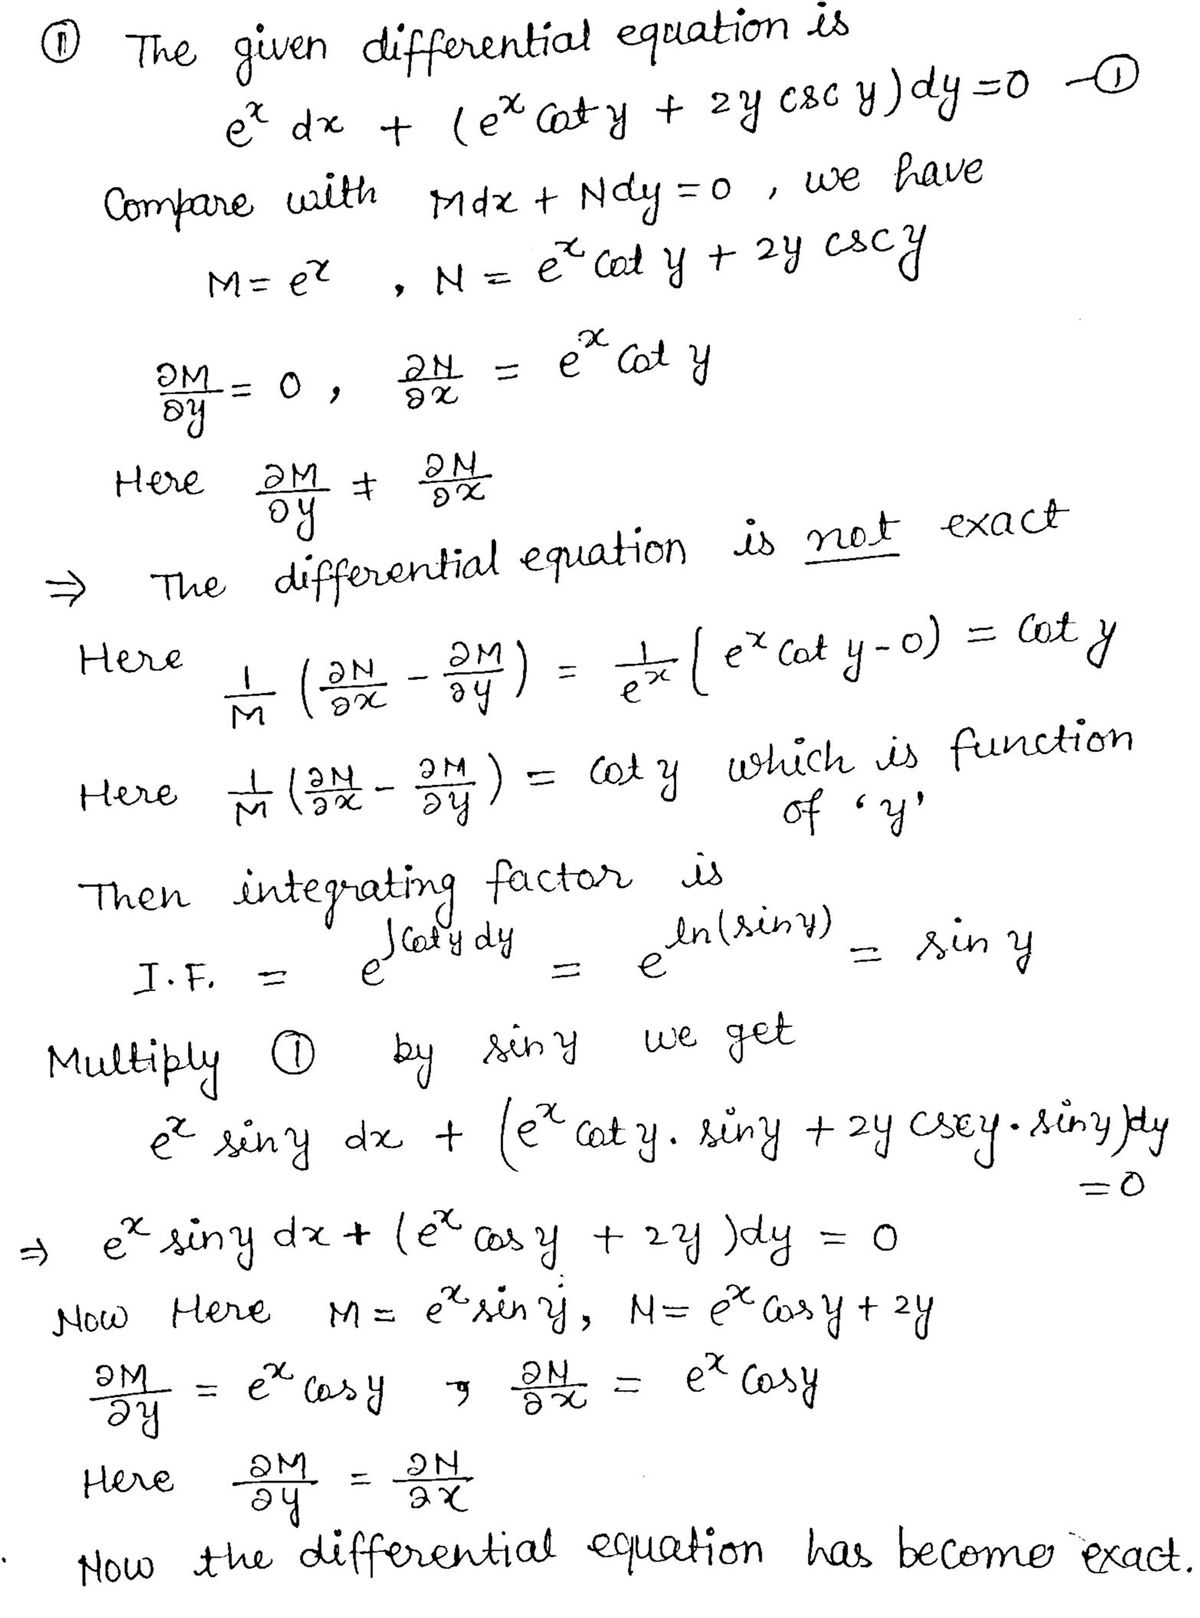 ① The given differential equation is
e^x dx + (e^x cot y + 2y csc y) dy = 0 — ①
Compare with Mdx + Ndy = 0, we have
M = e^x, N = e^x cot y + 2y csc y
∂M/∂y = 0, ∂N/∂x = e^x cot y
Here ∂M/∂y ≠ ∂N/∂x
⇒ The differential equation is not exact
Here 1/M (∂N/∂x - ∂M/∂y) = 1/e^x (e^x cot y - 0) = cot y
Here 1/M (∂N/∂x - ∂M/∂y) = cot y which is function
of 'y'
Then integrating factor is
I.F. = e^∫cot y dy = e^ln(sin y) = sin y
Multiply ① by sin y we get
e^x sin y dx + (e^x cot y. sin y + 2y csc y. sin y) dy
= 0
⇒ e^x sin y dx + (e^x cos y + 2y) dy = 0
Now Here M = e^x sin y, N = e^x cos y + 2y
∂M/∂y = e^x cos y, ∂N/∂x = e^x cos y
Here ∂M/∂y = ∂N/∂x
Now the differential equation has become exact.